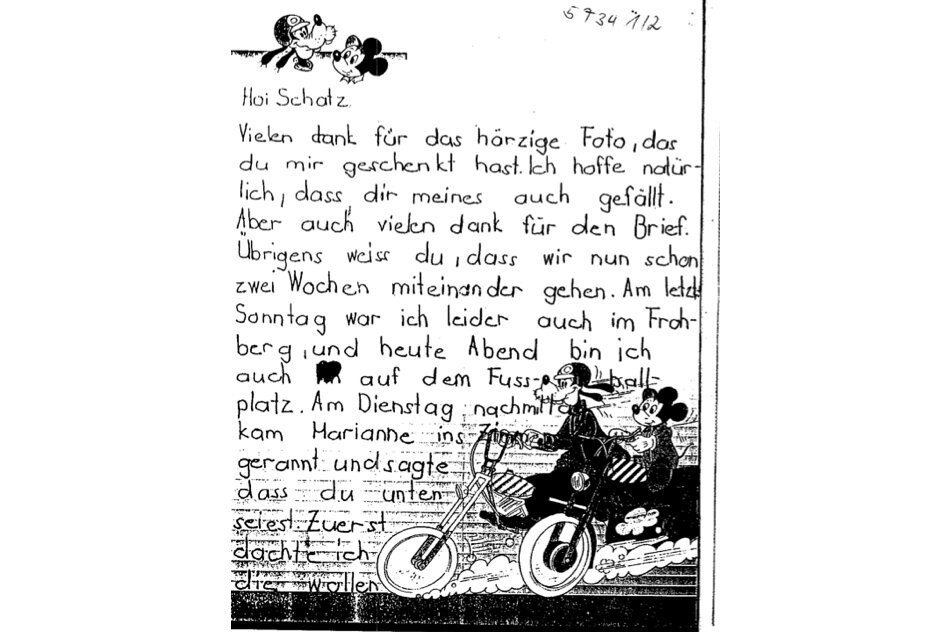 5734 1/2
Hoi Schatz.
Vielen dank für das hörzige Foto, das
du mir geschenkt hast. Ich hoffe natür-
lich, dass dir meines auch gefällt.
Aber auch vielen dank für den Brief.
Übrigens weiss du, dass wir nun schon
zwei Wochen miteinander gehen. Am letzt
Sonntag war ich leider auch im Froh-
berg, und heute Abend bin ich
auch auf dem Fuss- ball-
platz. Am Dienstag nachmittag
kam Marianne ins Zimmer
gerannt und sagte
dass du unten
seiest. Zuerst
dachte ich
die wollen